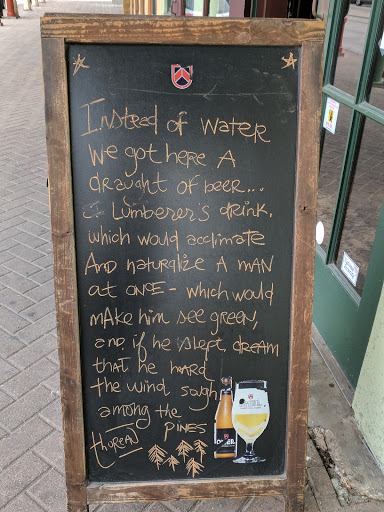 Instead of water
we got here A
draught of beer...
A Lumberer's drink,
which would acclimate
And naturalize A MAN
at ONCE - which would
mAke him see green,
and, if he slept, dream
that he heard
the wind sough
among the
pines
thoreau